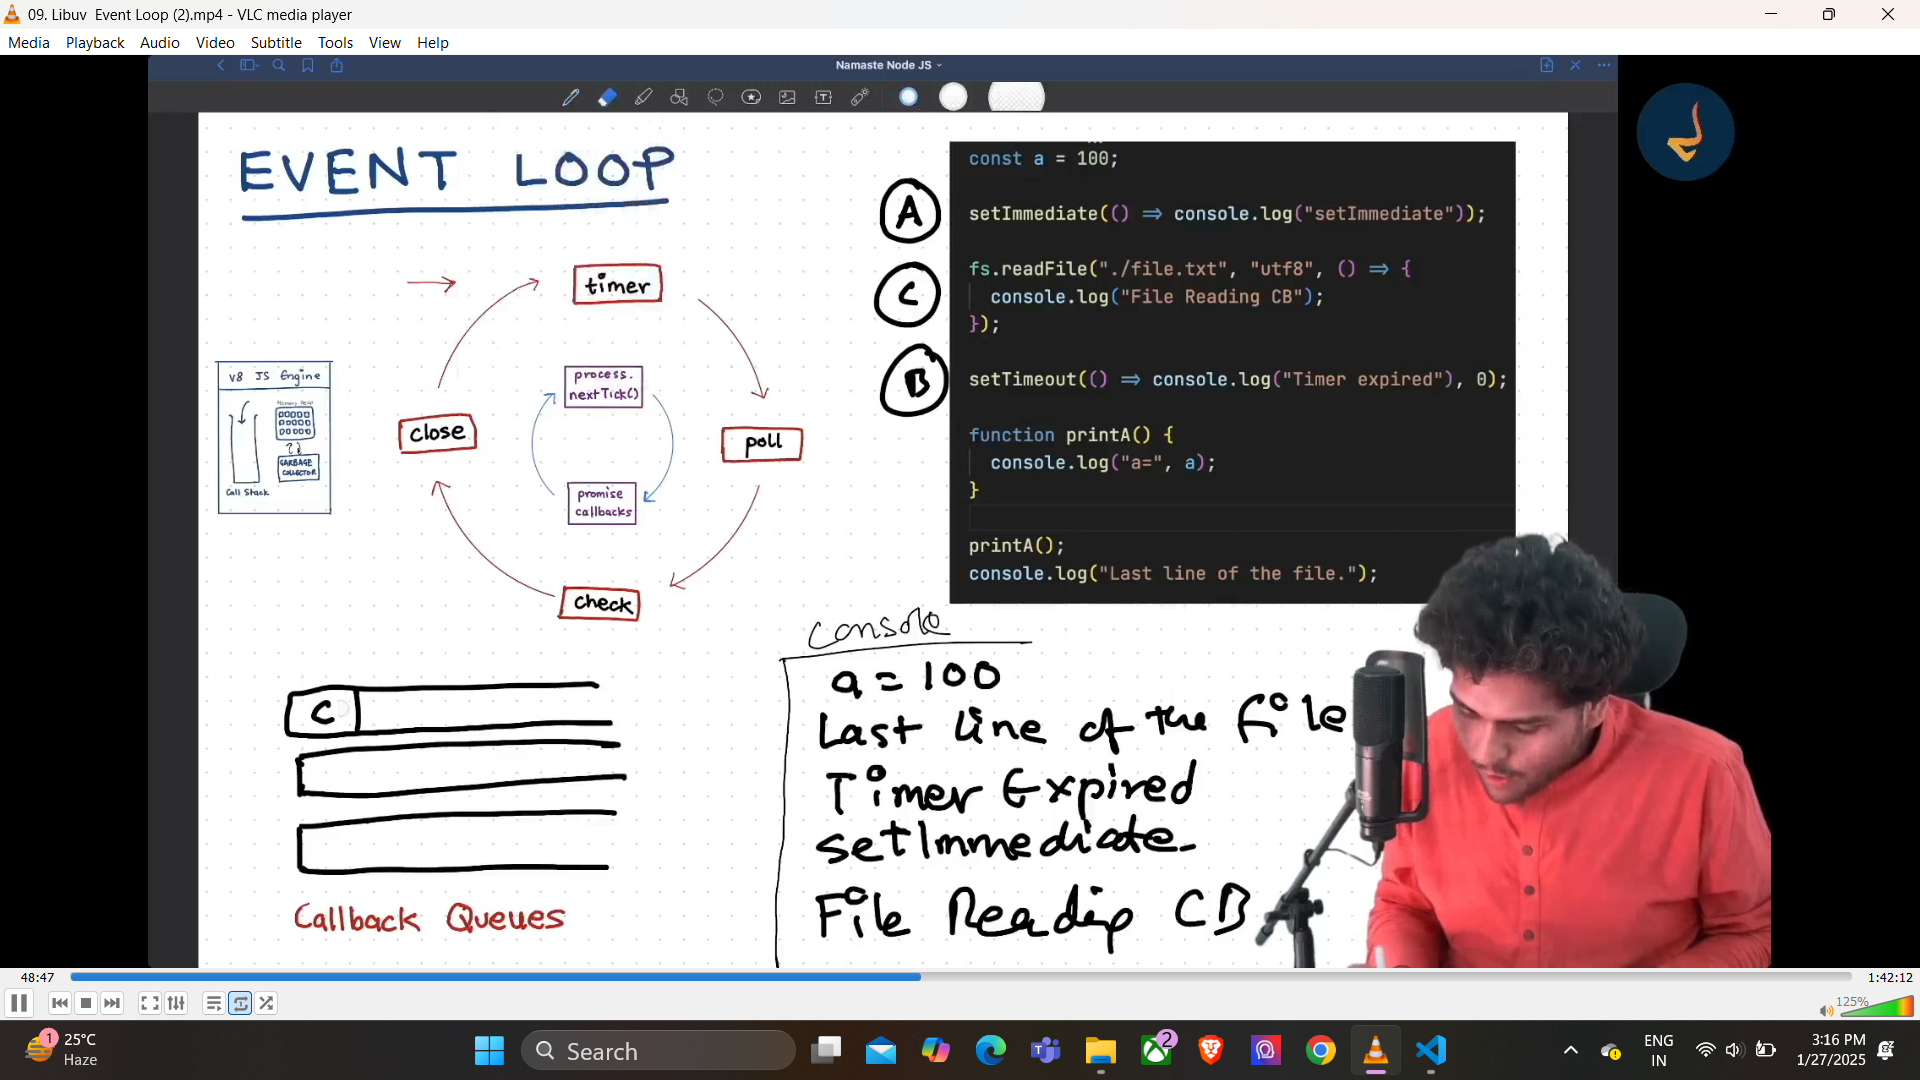 09. Libuv  Event Loop (2).mp4 - VLC media player
Media Playback Audio Video Subtitle Tools View Help
Namaste Node JS
EVENT LOOP
timer
process.
nextTick()
promise
callbacks
close
poll
check
V8 JS Engine
Memory Heap
GARBAGE
COLLECTOR
Call Stack
A
C
B
const a = 100;
setImmediate(() => console.log("setImmediate"));
fs.readFile("./file.txt", "utf8", () => {
console.log("File Reading CB");
});
setTimeout(() => console.log("Timer expired"), 0);
function printA() {
console.log("a=", a);
}
printA();
console.log("Last line of the file.");
C
Callback Queues
Console
a = 100
Last line of the file
Timer Expired
setImmediate
File Reading CB
48:47
1:42:12
125%
1
25°C
Haze
Search
2
ENG
IN
3:16 PM
1/27/2025